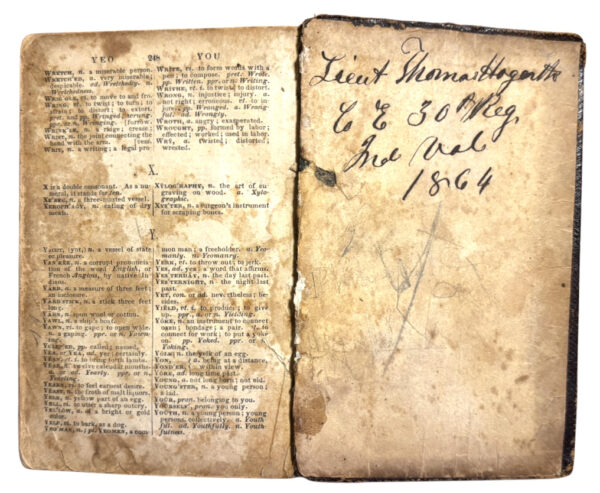 YEO 248 YOU
WRETCH, n. a miserable person.
WRETCH'ED, a. very miserable;
despicable. ad. Wretchedly. n.
Wretchedness.
to move to and fro.
to twist; to turn; to
to distort; to extort.
pret. and pp. Wringed, wrung.
ppr. or n. Wringing. [furrow.
WRINK'LE, n. a ridge; crease;
WRIST, n. the joint connecting the
hand with the arm. [cess.
WRIT, n. a writing; a legal pro-
WRITE, vt. to form words with a
pen; to compose. pret. Wrote.
pp. Written. ppr. or n. Writing.
WRITHE, vt. to twist; to distort.
WRONG, n. injustice; injury. a.
not right; erroneous. vt. to in-
jure. pp. Wronged. a. Wrong-
ful. ad. Wrongly.
WROTH, a. angry; exasperated.
WROUGHT, pp. formed by labor;
effected; worked; used in labor.
WRY, a. twisted; distorted;
wrested.
X.
X is a double consonant. As a nu-
meral, it stands for ten.
XE'BEC, n. a three-masted vessel.
n. eating of dry
meats.
XYLOG'RAPHY, n. the art of en-
graving on wood. a. Xylo-
graphic.
XYS'TER, n. a surgeon's instrument
for scraping bones.
Y.
YACHT, (yot,) n. a vessel of state
or pleasure.
YAN'KEE, n. a corrupt pronuncia-
tion of the word English, or
French Anglois, by native In-
dians.
YARD, n. a measure of three feet;
an inclosure.
YARDSTICK, n. a stick three feet
long.
YARN, n. spun wool or cotton.
YAWL, n. a ship's boat.
YAWN, vi. to gape; to open wide.
n. a gaping. ppr. or n. Yawn-
ing.
pp. called; named.
YEA, or YEA, ad. yes; certainly.
to bring forth lambs.
YEAR, n. twelve calendar months.
a. or ad. Yearly. ppr. or n.
YEARN, vi. to feel earnest desire.
YEAST, n. the froth of malt liquors.
YELK, n. yellow part of an egg.
YELL, vi. to utter a sharp outcry.
YEL'LOW, a. of a bright or gold
color.
YELP, vi. to bark, as a dog.
YEO'MAN, n.; pl. YEOMEN, a com-
mon man; a freeholder. a. Yeo-
manly. n. Yeomanry.
YERK, vt. to throw out; to jerk.
YES, ad. yea; a word that affirms.
YES'TERDAY, n. the day last past.
YES'TERNIGHT, n. the night last
past.
YET, con. or ad. nevertheless; be-
sides.
YIELD, vt. to produce; to give
up. ppr., a. or n. Yielding.
YOKE, n. an instrument to connect
oxen; bondage; a pair. vt. to
connect for work; to put a yoke
on. pp. Yoked. ppr.
Yoking.
YOLK, n. the yelk of an egg.
YON, a. being at a distance,
YON'DER, within view.
YORE, ad. long time past.
YOUNG, a. not long born; not old.
YOUNG'STER, n. a young person;
a lad.
YOUR, pron. belonging to you.
YOURSELF', pron. you only.
YOUTH, n. a young person; young
persons, collectively. a. Youth-
ful. ad. Youthfully. n. Youth-
fulness.
Lieut Thomas Hogarth
C E 30th Reg.
Ind Vol
1864